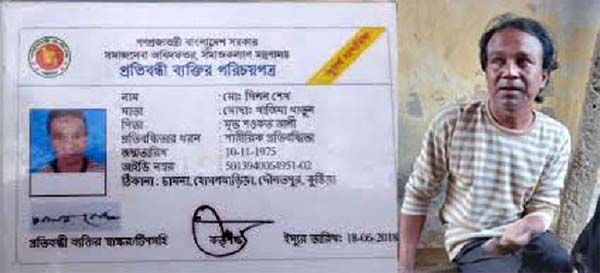 গণপ্রজাতন্ত্রী বাংলাদেশ সরকার
সমাজসেবা অধিদফতর, সমাজকল্যাণ মন্ত্রণালয়
প্রতিবন্ধী ব্যক্তির পরিচয়পত্র
নাম : মোঃ মিলন শেখ
মাতা : মোছাঃ খাতুন
পিতা : মৃত শওকত আলী
প্রতিবন্ধিতার ধরন : শারীরিক প্রতিবন্ধিতা
জন্মতারিখ : 10-11-1975
আইডি নম্বর : 5013940064951-02
ঠিকানা : দৌলতপুর, কুষ্টিয়া
প্রতিবন্ধী ব্যক্তির স্বাক্ষর/টিপসহি
কর্তৃপক্ষ
ইস্যুর তারিখ: 18-06-2018